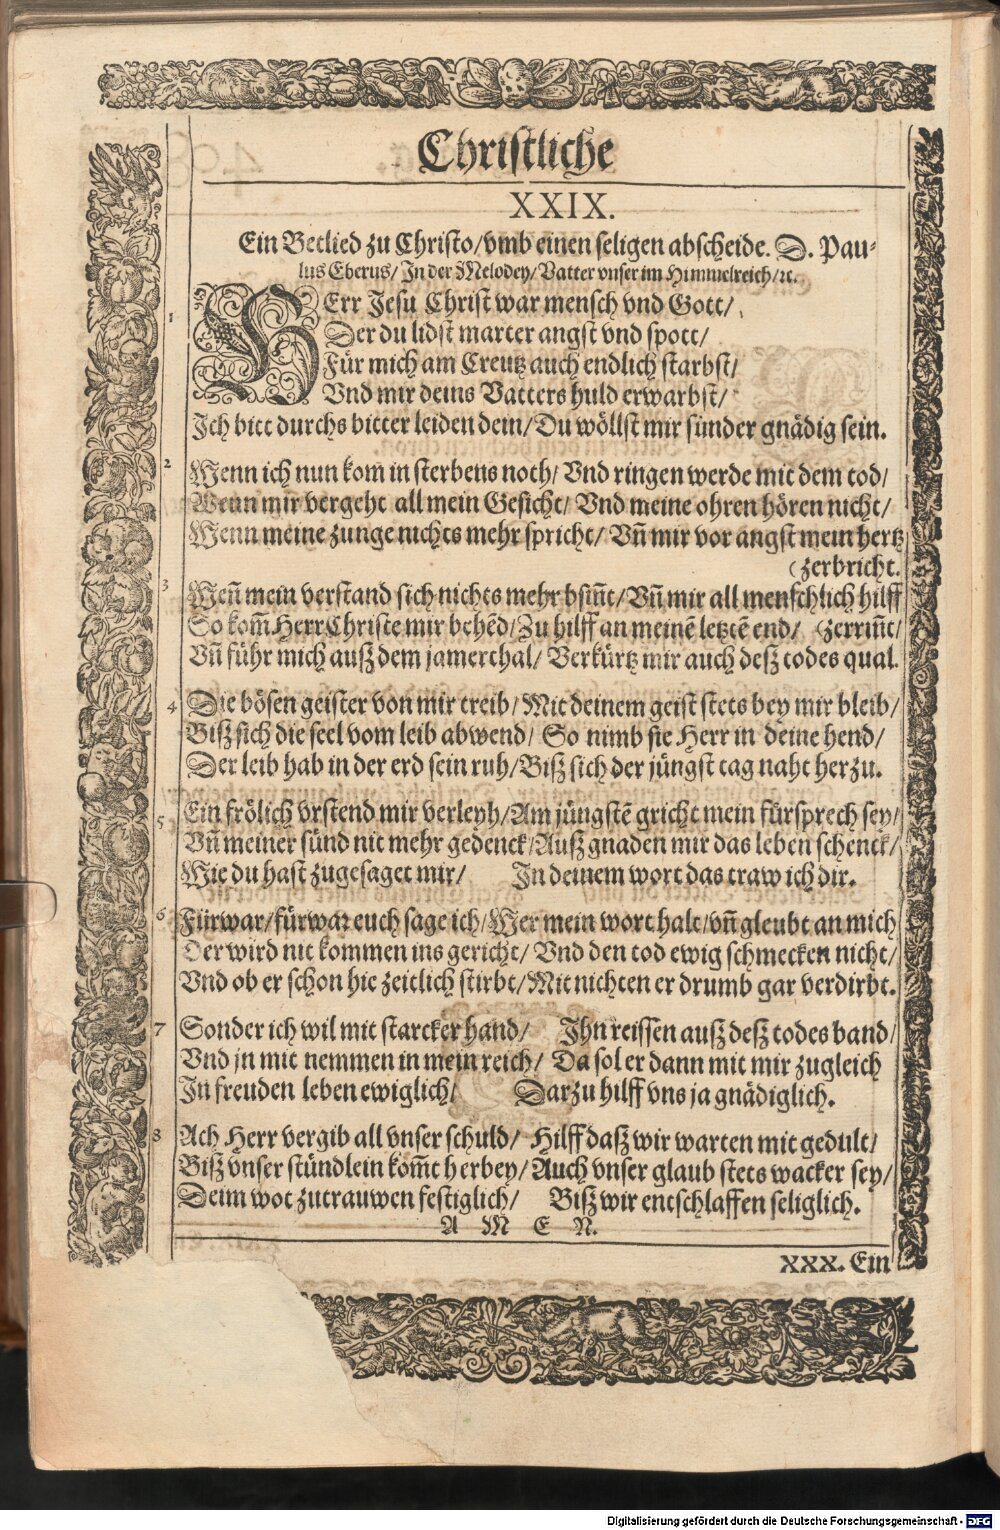 Christliche
XXIX.
Ein Betlied zu Christo/ vmb einen seligen abscheide. D. Pau-
lus Eberus/ In der Melodey/ Vatter vnser im Himmelreich/ ꝛc.
1 HErr Jesu Christ war mensch vnd Gott/
Der du lidst marter angst vnd spott/
Für mich am Creutz auch endlich starbst/
Vnd mir deins Vatters huld erwarbst/
Ich bitt durchs bitter leiden dein/ Du wöllst mir sünder gnädig sein.
2 Wenn ich nun kom in sterbens noth/ Vnd ringen werde mit dem tod/
Wenn mir vergeht all mein Gesicht/ Vnd meine ohren hören nicht/
Wenn meine zunge nichts mehr spricht/ Vñ mir vor angst mein hertz
(zerbricht.
3 Weñ mein verstand sich nichts mehr bsiñt/ Vñ mir all menschlich hilff
So kom̃ Herr Christe mir behẽd/ Zu hilff an meinẽ letztẽ end/ (zerriñt/
Vñ führ mich auß dem jamerthal/ Verkürtz mir auch deß todes qual.
4 Die bösen geister von mir treib/ Mit deinem geist stets bey mir bleib/
Biß sich die seel vom leib abwend/ So nimb sie Herr in deine hend/
Der leib hab in der erd sein ruh/ Biß sich der jüngst tag naht herzu.
5 Ein frölich vrstend mir verleyh/ Am jüngstẽ gricht mein fürsprech sey/
Vñ meiner sünd nit mehr gedenck/ Auß gnaden mir das leben schenck/
Wie du hast zugesaget mir/ In deinem wort das traw ich dir.
6 Fürwar/ fürwar euch sage ich/ Wer mein wort halt/ vñ gleubt an mich
Der wird nit kommen ins gericht/ Vnd den tod ewig schmecken nicht/
Vnd ob er schon hie zeitlich stirbt/ Mit nichten er drumb gar verdirbt.
7 Sonder ich wil mit starcker hand/ Ihn reissen auß deß todes band/
Vnd jn mit nemmen in mein reich/ Da sol er dann mit mir zugleich
In freuden leben ewiglich/ Darzu hilff vns ja gnädiglich.
8 Ach Herr vergib all vnser schuld/ Hilff daß wir warten mit gedult/
Biß vnser stündlein kom̃t herbey/ Auch vnser glaub stets wacker sey/
Deim wot zutrauwen festiglich/ Biß wir entschlaffen seliglich.
A M E N.
XXX. Ein
Digitalisierung gefördert durch die Deutsche Forschungsgemeinschaft - DFG